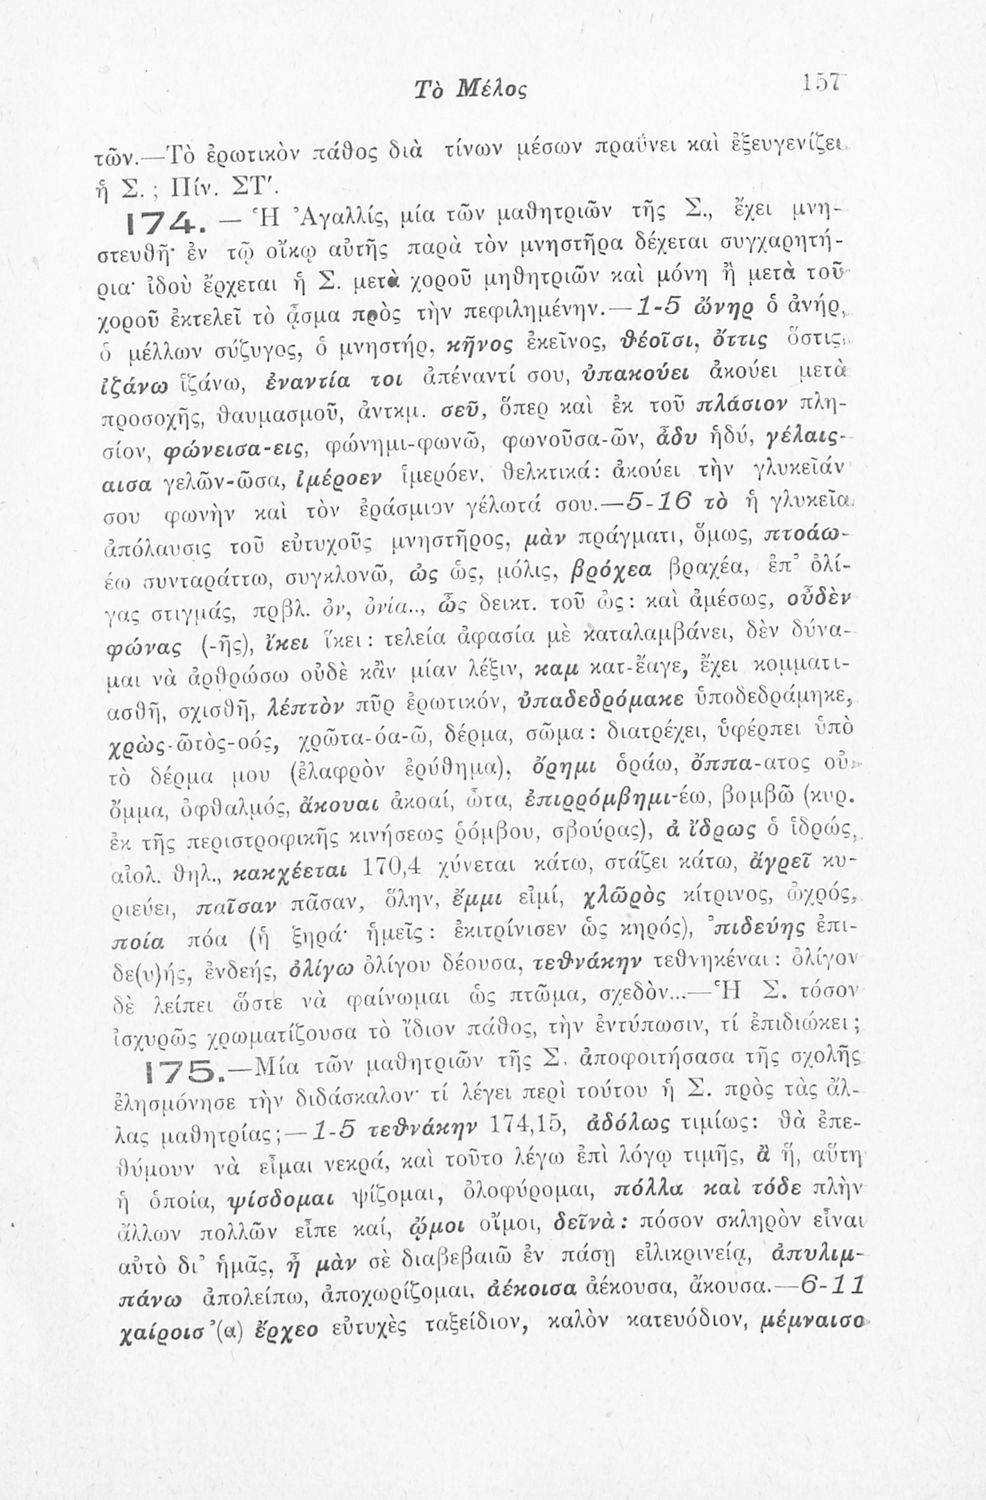 Τὸ Μέλος 157
τῶν.—Τὸ ἐρωτικὸν πάθος διὰ τίνων μέσων πραΰνει καὶ ἐξευγενίζει
ἡ Σ. ; Πίν. ΣΤ′.
174. — Ἡ Ἀγαλλίς, μία τῶν μαθητριῶν τῆς Σ., ἔχει μνη-
στευθῆ· ἐν τῷ οἴκῳ αὐτῆς παρὰ τὸν μνηστῆρα δέχεται συγχαρητή-
ρια· ἰδοὺ ἔρχεται ἡ Σ. μετὰ χοροῦ μηθητριῶν καὶ μόνη ἢ μετὰ τοῦ
χοροῦ ἐκτελεῖ τὸ ᾆσμα πρὸς τὴν πεφιλημένην.—1-5 ὤνηρ ὁ ἀνήρ,
ὁ μέλλων σύζυγος, ὁ μνηστήρ, κῆνος ἐκεῖνος, θέοῖσι, ὄττις ὅστις,
ἰζάνω ἱζάνω, ἐναντία τοι ἀπέναντί σου, ὐπακούει ἀκούει μετὰ
προσοχῆς, θαυμασμοῦ, ἀντκμ. σεῦ, ὅπερ καὶ ἐκ τοῦ πλάσιον πλη-
σίον, φώνεισα-εις, φώνημι-φωνῶ, φωνοῦσα-ῶν, ἆδυ ἡδύ, γέλαις-
αισα γελῶν-ῶσα, ἰμέροεν ἱμερόεν, θελκτικά: ἀκούει τὴν γλυκεῖάν
σου φωνὴν καὶ τὸν ἐράσμιον γέλωτά σου.—5-16 τὸ ἡ γλυκεῖα
ἀπόλαυσις τοῦ εὐτυχοῦς μνηστῆρος, μὰν πράγματι, ὅμως, πτοάω-
έω συνταράττω, συγκλονῶ, ὠς ὡς, μόλις, βρόχεα βραχέα, ἐπ' ὀλί-
γας στιγμάς, πρβλ. ὀν, ὀνία.., ὦς δεικτ. τοῦ ὡς: καὶ ἀμέσως, οὖδὲν
φώνας (-ῆς), ἴκει ἵκει: τελεία ἀφασία μὲ καταλαμβάνει, δὲν δύνα-
μαι νὰ ἀρθρώσω οὐδὲ κἂν μίαν λέξιν, καμ κατ-ἔαγε, ἔχει κομματι-
ασθῆ, σχισθῆ, λέπτὸν πῦρ ἐρωτικόν, ὐπαδεδρόμακε ὑποδεδράμηκε,
χρὼς-ῶτὸς-οός, χρῶτα-όα-ῶ, δέρμα, σῶμα: διατρέχει, ὑφέρπει ὑπὸ
τὸ δέρμα μου (ἐλαφρὸν ἐρύθημα), ὄρημι ὁράω, ὄππα-ατος οὐ
ὄμμα, ὀφθαλμός, ἄκουαι ἀκοαί, ὦτα, ἐπιρρόμβημι-έω, βομβῶ (κυρ.
ἐκ τῆς περιστροφικῆς κινήσεως ῥόμβου, σβούρας), ἀ ἴδρως ὁ ἱδρώς,
αἰολ. θηλ., κακχέεται 170,4 χύνεται κάτω, στάζει κάτω, ἄγρεῖ κυ-
ριεύει, παῖσαν πᾶσαν, ὅλην, ἔμμι εἰμί, χλῶρὸς κίτρινος, ὠχρός,
ποία πόα (ἡ ξηρά· ἡμεῖς: ἐκιτρίνισεν ὡς κηρός), 'πιδεύης ἐπι-
δε(υ)ής, ἐνδεής, ὀλίγω ὀλίγου δέουσα, τεθνάκην τεθνηκέναι: ὀλίγον
δὲ λείπει ὥστε νὰ φαίνωμαι ὡς πτῶμα, σχεδὸν...—Ἡ Σ. τόσον
ἰσχυρῶς χρωματίζουσα τὸ ἴδιον πάθος, τὴν ἐντύπωσιν, τί ἐπιδιώκει;
175.—Μία τῶν μαθητριῶν τῆς Σ. ἀποφοιτήσασα τῆς σχολῆς
ἐλησμόνησε τὴν διδάσκαλον· τί λέγει περὶ τούτου ἡ Σ. πρὸς τὰς ἄλ-
λας μαθητρίας;—1-5 τεθνάκην 174,15, ἀδόλως τιμίως: θὰ ἐπε-
θύμουν νὰ εἶμαι νεκρά, καὶ τοῦτο λέγω ἐπὶ λόγῳ τιμῆς, ἂ ἥ, αὕτη
ἡ ὁποία, ψίσδομαι ψίζομαι, ὀλοφύρομαι, πόλλα καὶ τόδε πλὴν
ἄλλων πολλῶν εἶπε καί, ᾤμοι οἴμοι, δεῖνὰ: πόσον σκληρὸν εἶναι
αὐτὸ δι' ἡμᾶς, ἦ μὰν σὲ διαβεβαιῶ ἐν πάσῃ εἰλικρινείᾳ, ἀπυλιμ-
πάνω ἀπολείπω, ἀποχωρίζομαι, ἀέκοισα ἀέκουσα, ἄκουσα.—6-11
χαίροισ'(α) ἔρχεο εὐτυχὲς ταξείδιον, καλὸν κατευόδιον, μέμναισο